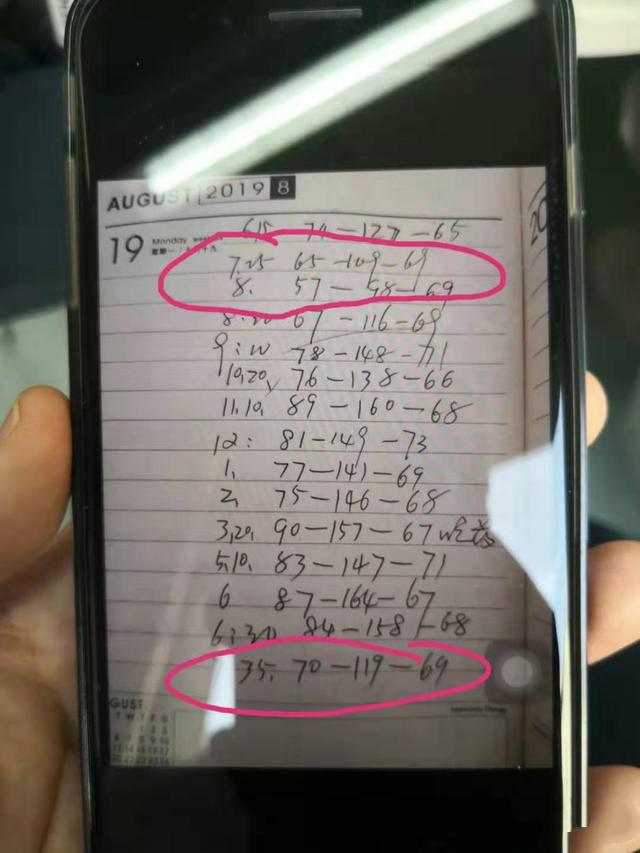 AUGUST 2019 8
19 Monday
6,15 74-127-65
7.25 65-109-69
8. 57-98-69
67-116-69
78-148-71
10,20, 76-138-66
11,10, 89-160-68
12: 81-149-73
1, 77-141-69
2, 75-146-68
3,20, 90-157-67
5,10, 83-147-71
6 87-164-67
6:30 84-158-68
35, 70-119-69
GUST
T W T F S
1 2 3
6 7 8 9 10
13 14 15 16 17
20 21 22 23 24